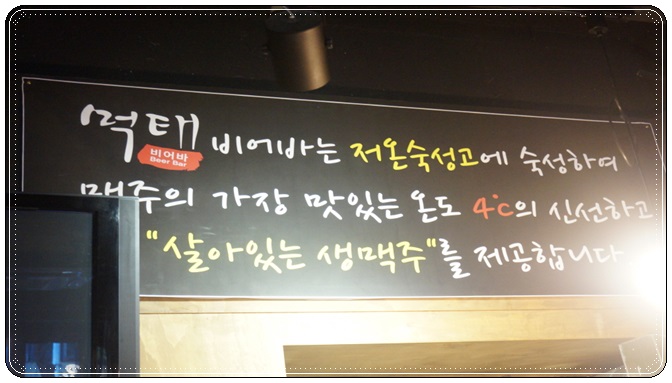 먹태 비어바는 저온숙성고에 숙성하여
비어바
Beer Bar
맥주의 가장 맛있는 온도 4°c의 신선하고
"살아있는 생맥주"를 제공합니다.